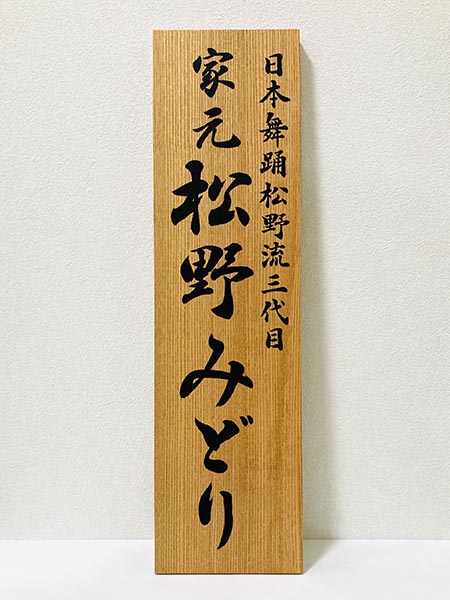 日本舞踊松野流三代目
家元松野みどり